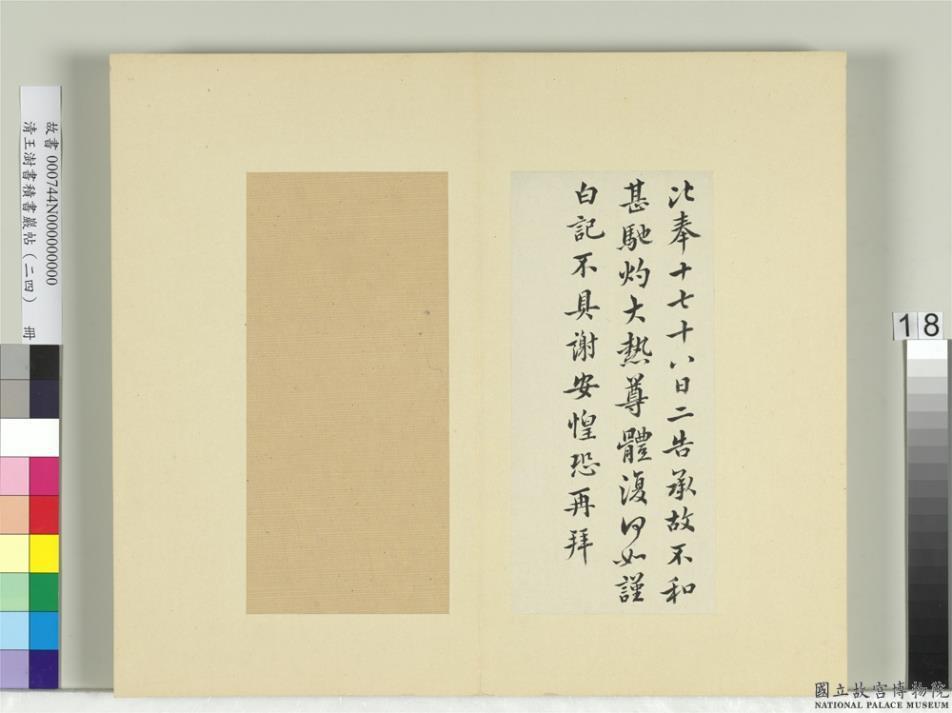 比奉十七十八日二告承故不和
甚馳灼大熱尊體復何如謹
白記不具謝安惶恐再拜
故書 000744N000000000
清王澍書積書巖帖（二四） 冊
18
國立故宮博物院
NATIONAL PALACE MUSEUM